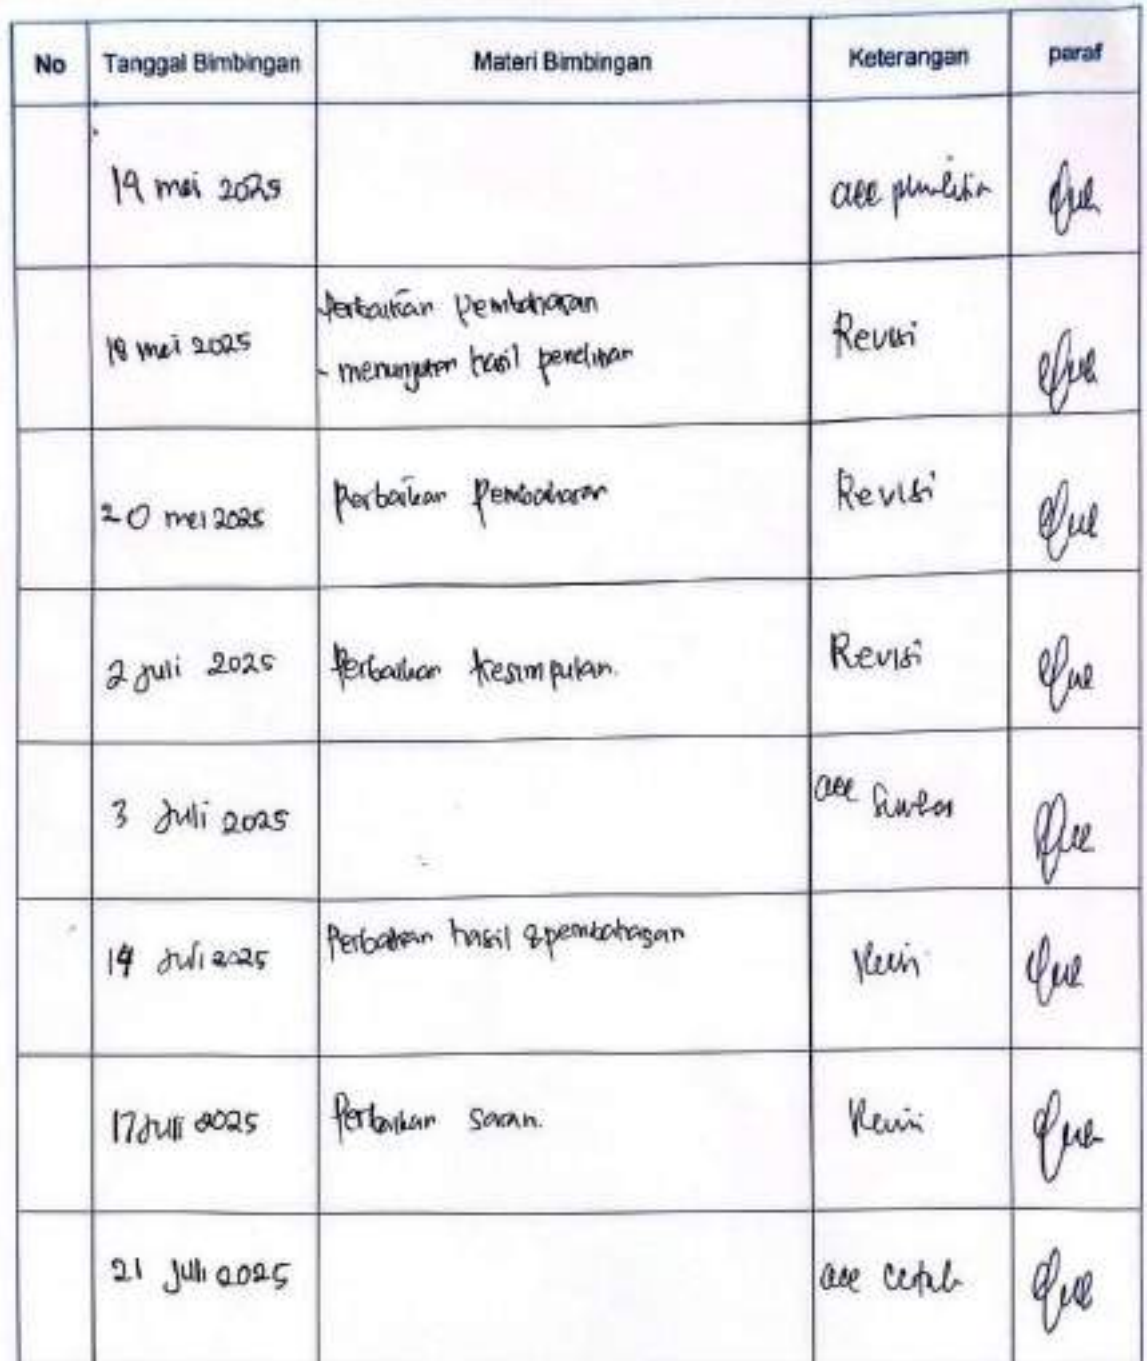 No Tanggal Bimbingan Materi Bimbingan Keterangan paraf
19 mei 2025 acc penelitian
Perbaikan pembahasan
18 mei 2025 Revisi
- hasil penelitian
20 mei 2025 Perbaikan Pembahasan Revisi
2 juli 2025 Perbaikan kesimpulan. Revisi
3 Juli 2025 acc
14 Juli 2025 Perbaikan hasil & pembahasan Revisi
17 Juli 2025 Perbaikan saran. Revisi
21 Juli 2025 acc cetak